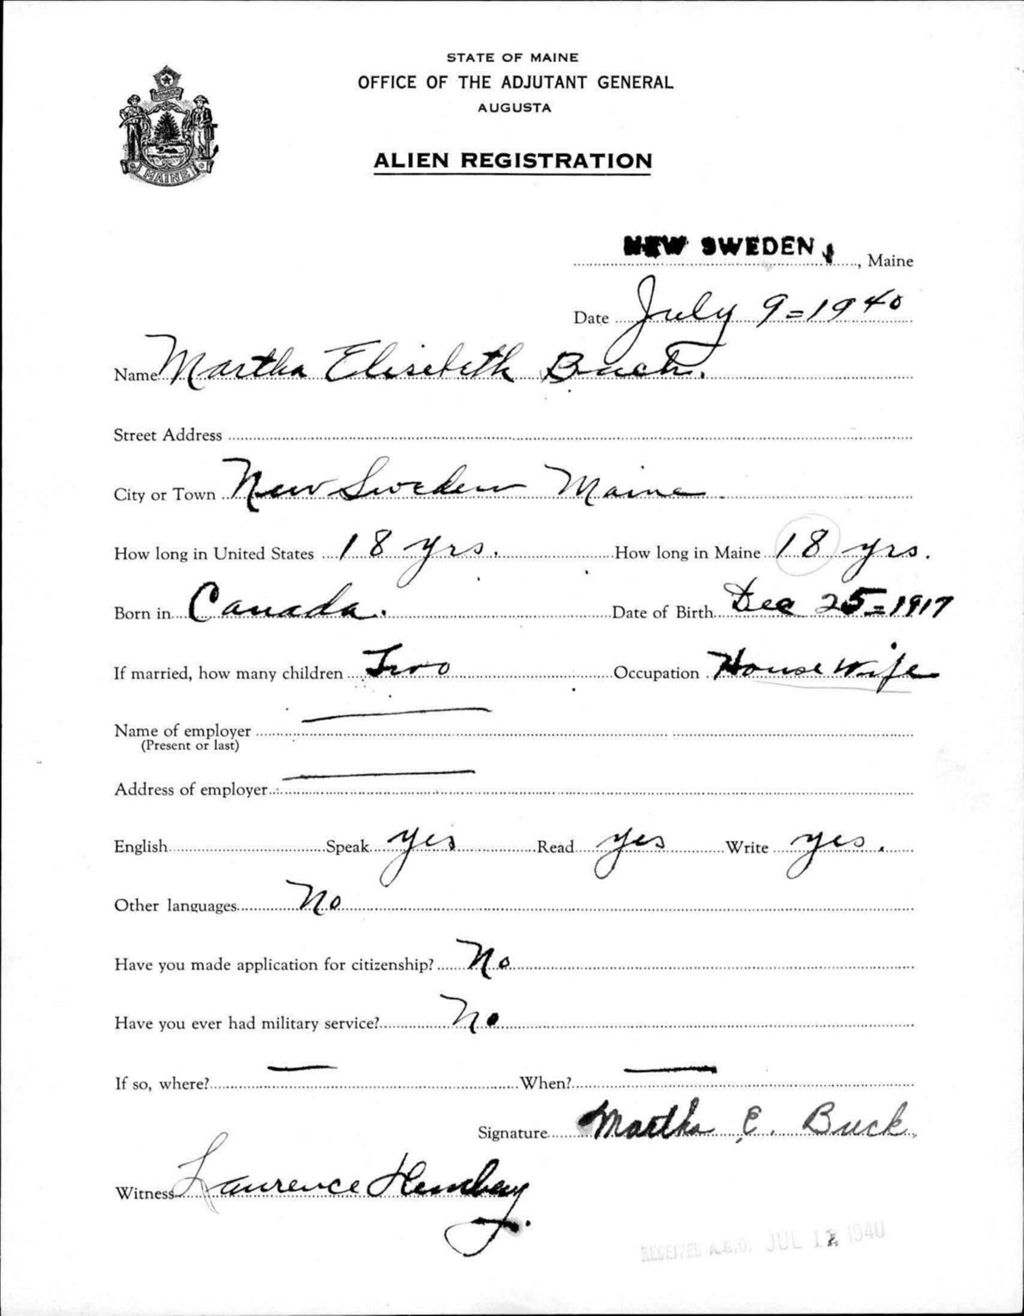 STATE OF MAINE
OFFICE OF THE ADJUTANT GENERAL
AUGUSTA
ALIEN REGISTRATION
MAINE
NEW SWEDEN, Maine
Date July 9=1940
Name Martha Elisebeth Buck.
Street Address
City or Town New Sweden Maine
How long in United States 18 yrs. How long in Maine 18 yrs.
Born in Canada. Date of Birth Dec 25=1917
If married, how many children Two Occupation House Wife
Name of employer
(Present or last)
Address of employer
English Speak yes Read yes Write yes.
Other languages No
Have you made application for citizenship? No
Have you ever had military service? No
If so, where? When?
Signature Martha E. Buck
Witness Laurence Hemberg
RECEIVED A.G.O. JUL 12 1940